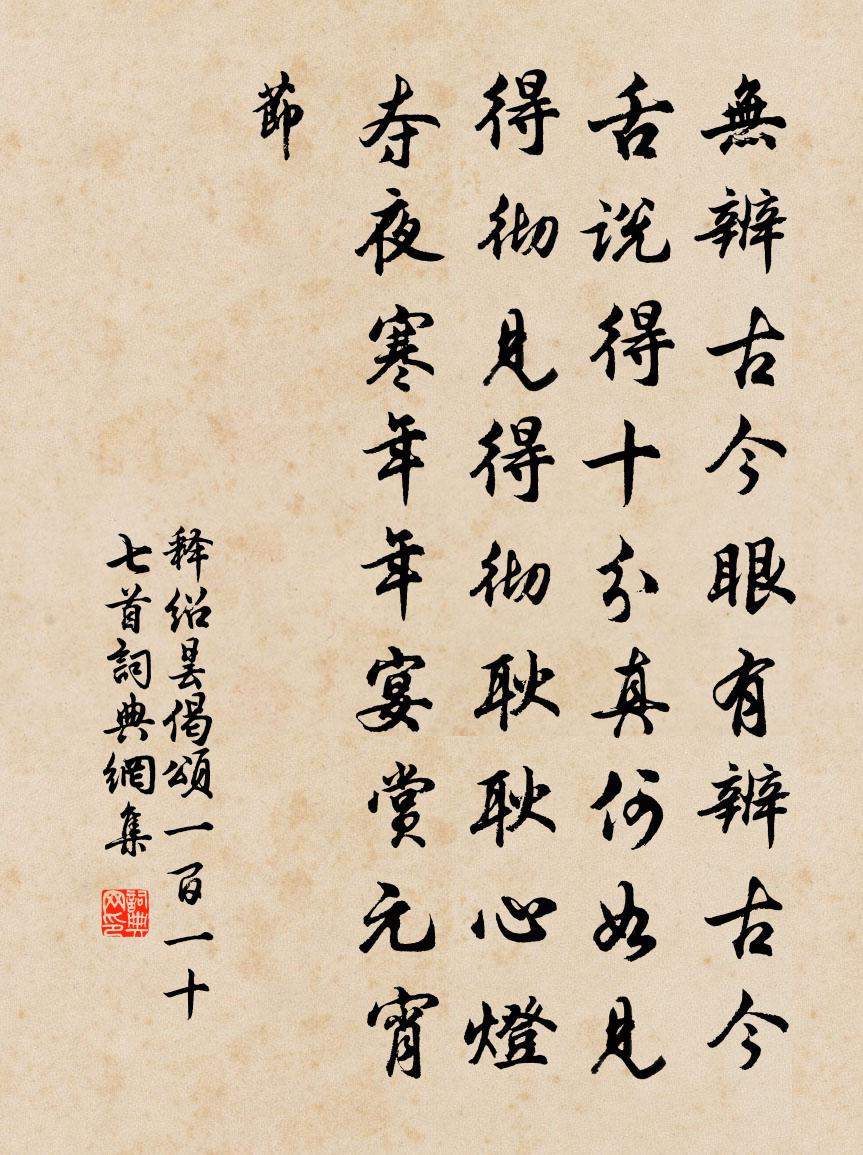 無辨古今眼有辨古今
舌說得十分真何如見
得彻見得彻耿耿心燈
夺夜寒年年宴賞元宵
節
释绍昙偈頌一百一十
七首詞典網集
詞典网印